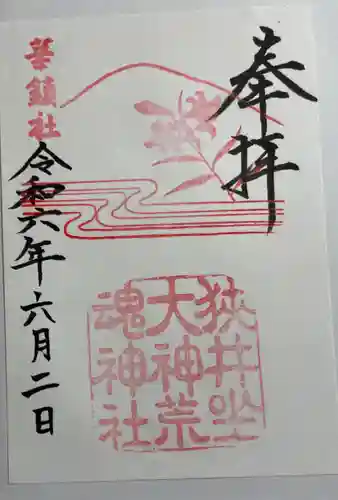 奉拝
狭井坐
大神荒
魂神社
華鎮社
令和六年六月二日